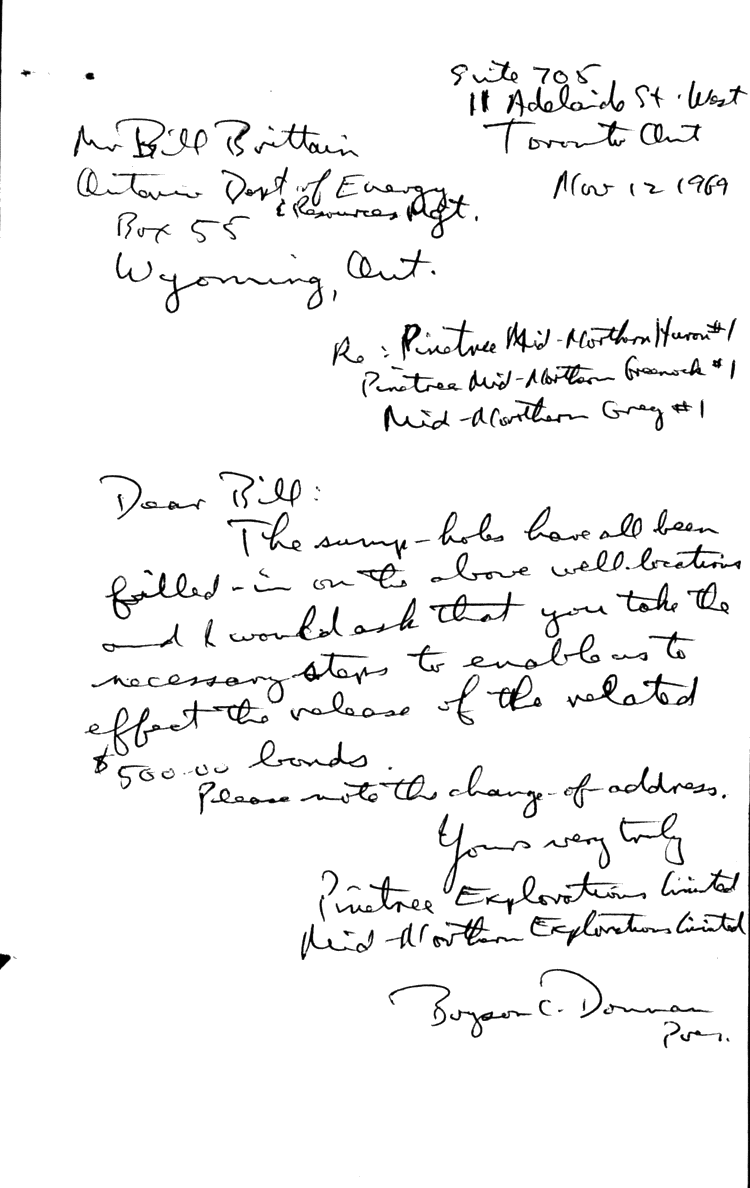 Suite 705
11 Adelaide St. West
Toronto Ont
Nov 12 1969
Mr Bill Brittain
Ontario Dept of Energy
& Resources Mgt.
Box 55
Wyoming, Ont.
Re: Pinetree Mid-Northern Huron #1
Pinetree Mid-Northern Greenock #1
Mid-Northern Grey #1
Dear Bill:
The sump-holes have all been
filled-in on the above well locations
and I would ask that you take the
necessary steps to enable us to
effect the release of the related
$500.00 bonds.
Please note the change-of-address.
Yours very truly
Pinetree Explorations Limited
Mid-Northern Explorations Limited
C.
Pres.